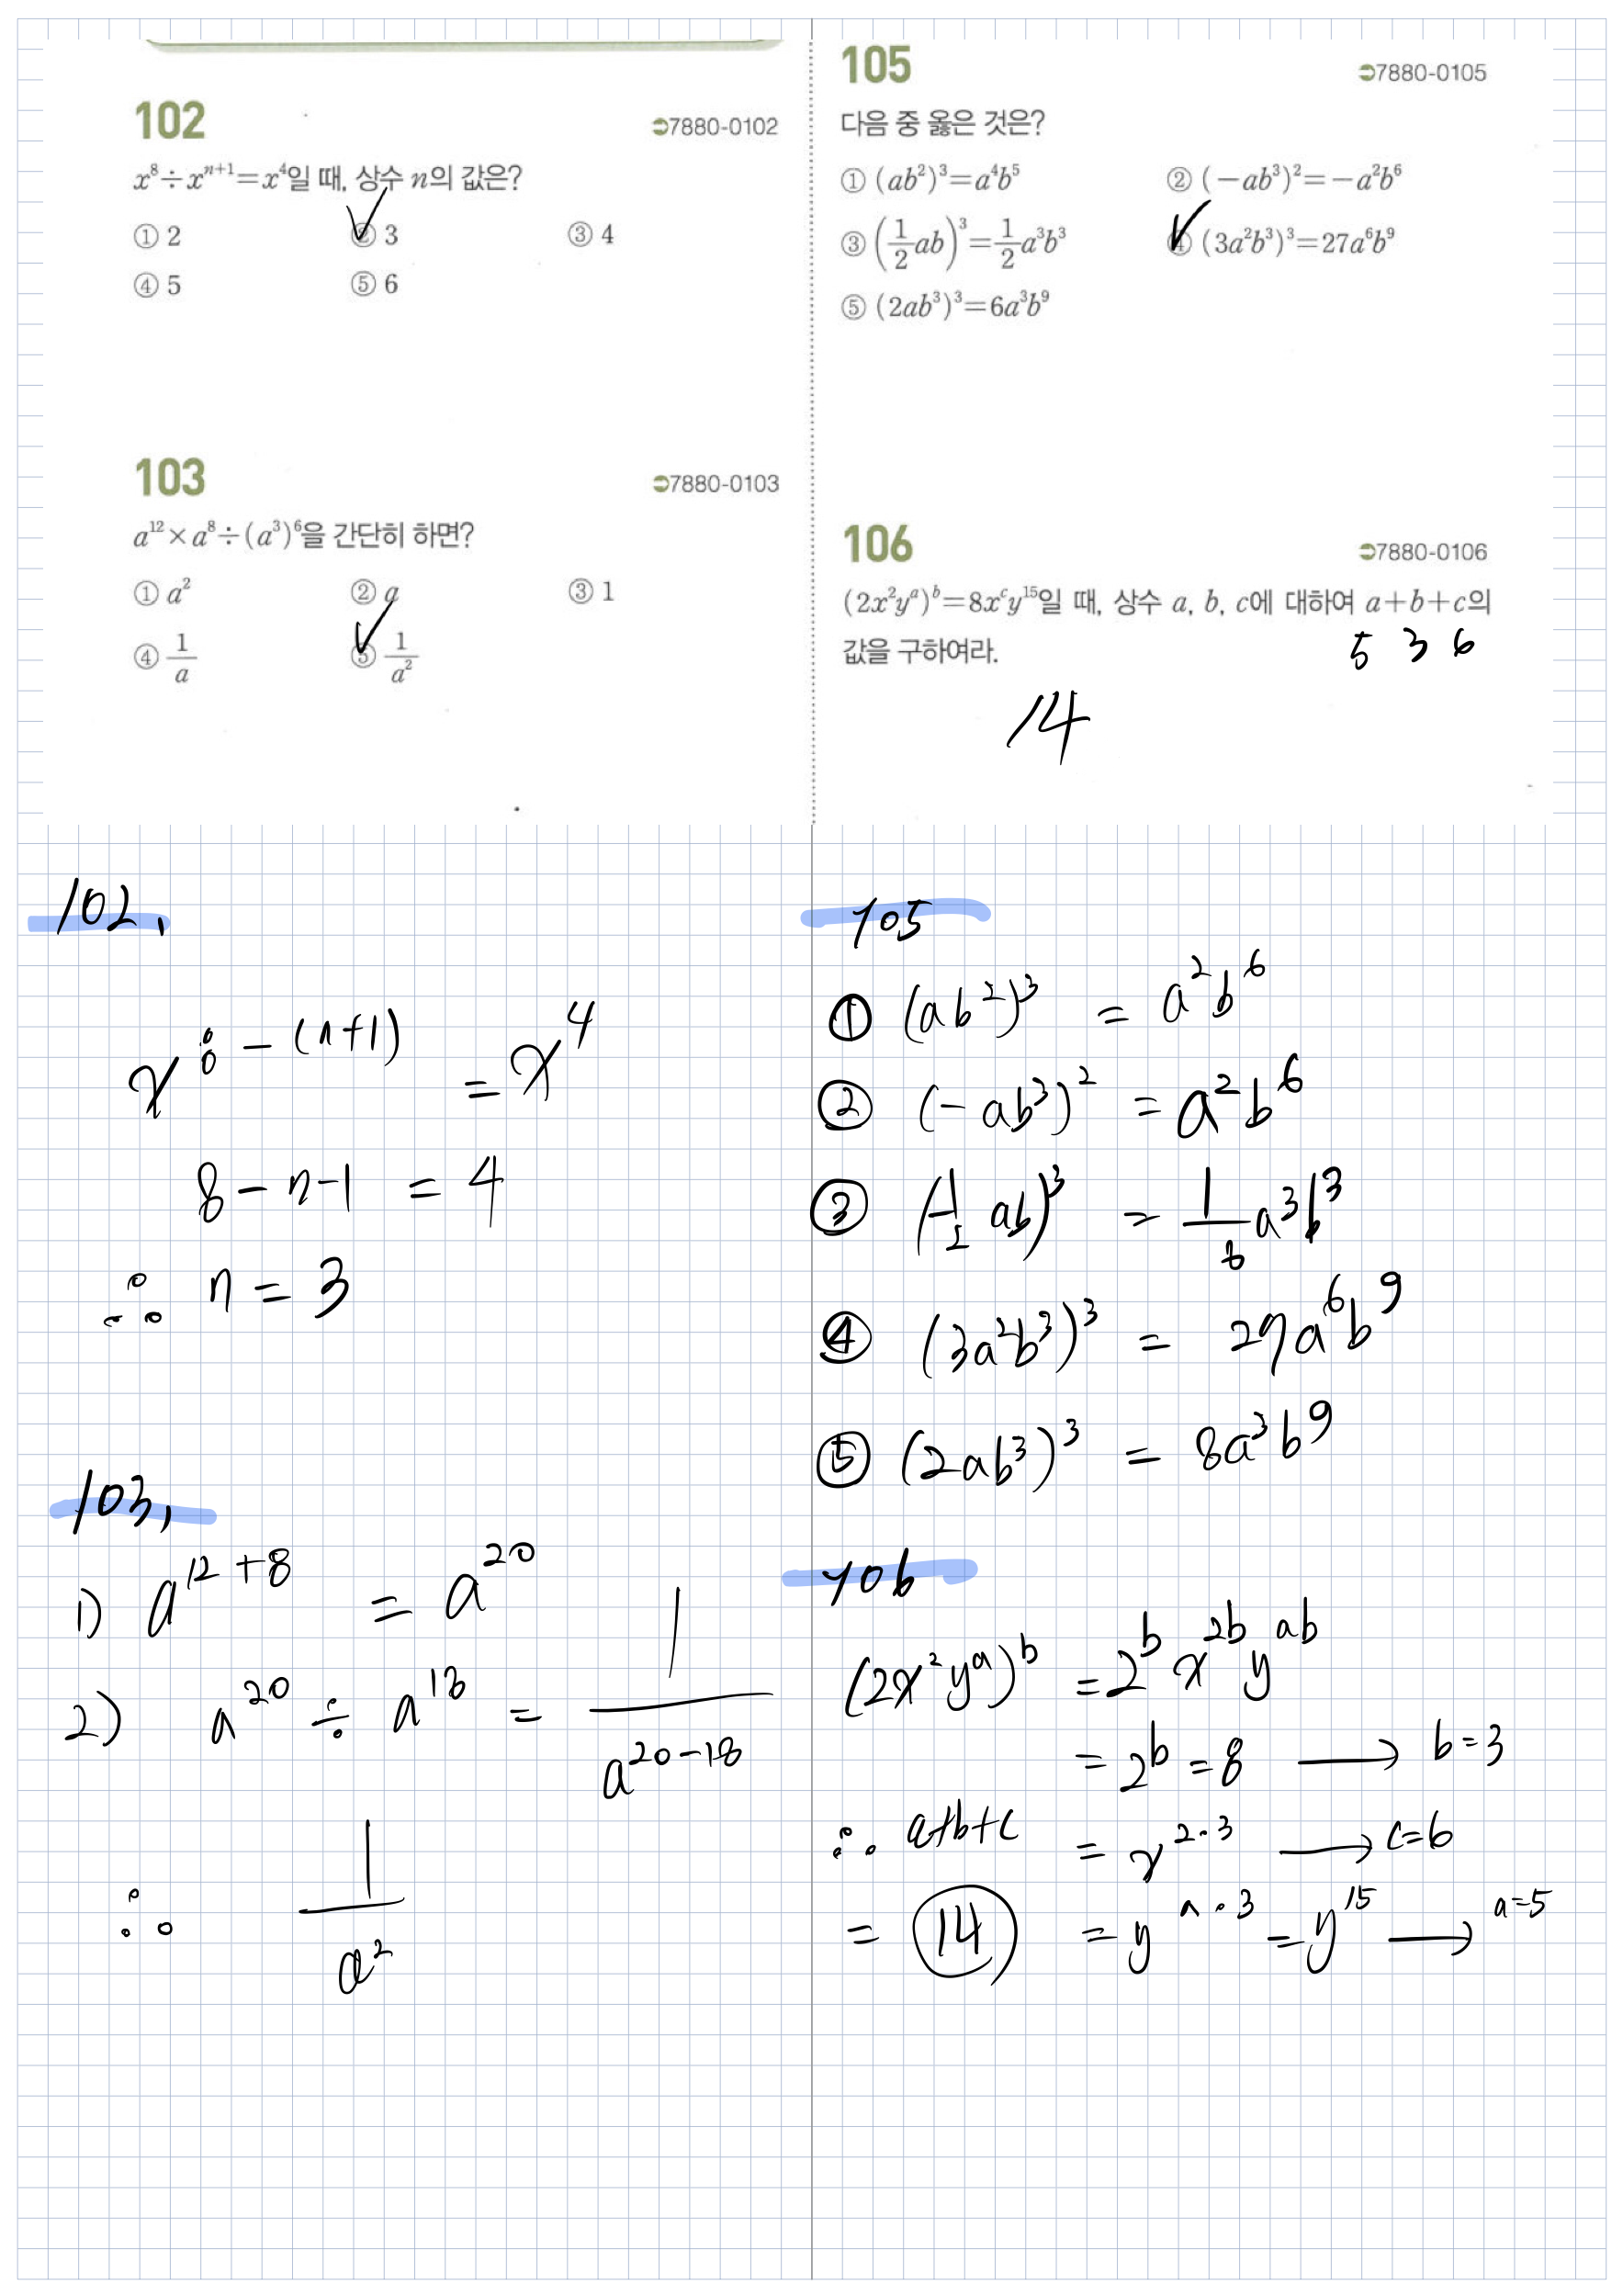 102
➲7880-0102
x⁸÷xⁿ⁺¹=x⁴일 때, 상수 n의 값은?
① 2 ② 3 ③ 4
④ 5 ⑤ 6
103
➲7880-0103
a¹²×a⁸÷(a³)⁶을 간단히 하면?
① a² ② a ③ 1
④ 1/a ⑤ 1/a²
105
➲7880-0105
다음 중 옳은 것은?
① (ab²)³=a⁴b⁵ ② (−ab³)²=−a²b⁶
③ (1/2 ab)³=1/2 a³b³ ④ (3a²b³)³=27a⁶b⁹
⑤ (2ab³)³=6a³b⁹
106
➲7880-0106
(2x²yᵃ)ᵇ=8xᶜy¹⁵일 때, 상수 a, b, c에 대하여 a+b+c의
값을 구하여라.
5 3 6
14
102,
x^(8-(n+1)) = x⁴
8-n-1 = 4
∴ n = 3
103,
1) a^(12+8) = a²⁰
2) a²⁰ ÷ a¹⁸ = 1/a^(20-18)
∴ 1/a²
105
① (ab²)³ = a²b⁶
② (-ab³)² = a²b⁶
③ (1/2 ab)³ = 1/8 a³b³
④ (3a²b³)³ = 27a⁶b⁹
⑤ (2ab³)³ = 8a³b⁹
106
(2x²yᵃ)ᵇ = 2ᵇ x²ᵇ yᵃᵇ
= 2ᵇ = 8 → b=3
∴ a+b+c = x^(2·3) → c=6
= 14 = y^(a·3) = y¹⁵ → a=5